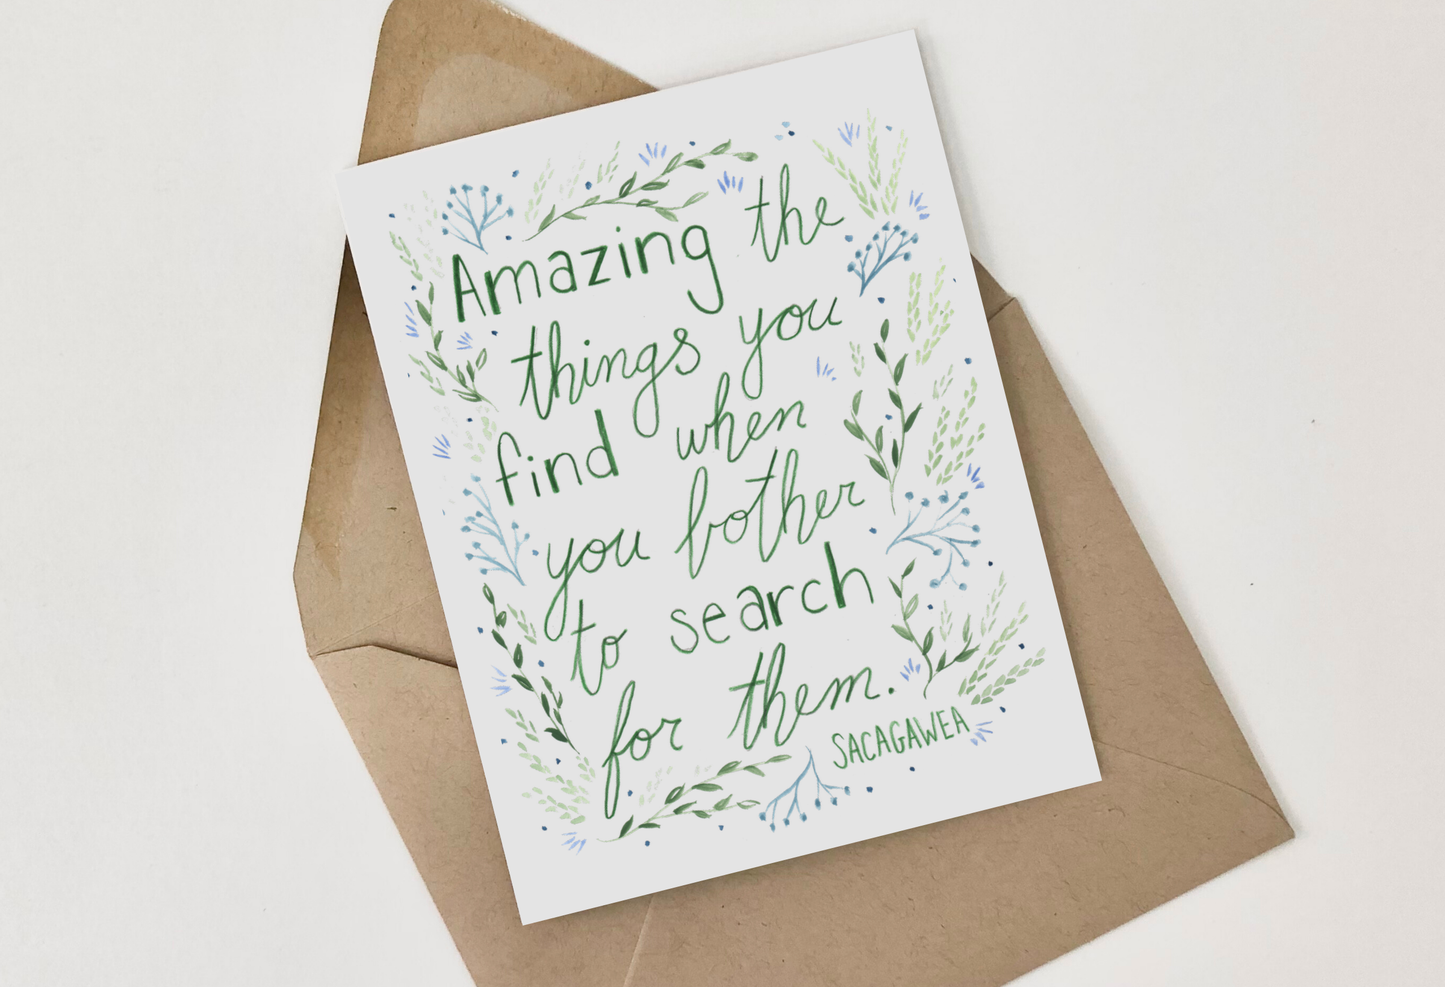 Amazing the
things you
find when
you bother
to search
for them.
SACAGAWEA